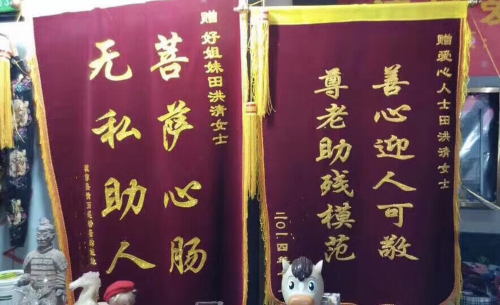 赠好姐妹田洪清女士
菩萨心肠
无私助人
赠爱心人士田洪清女士
善心迎人可敬
尊老助残模范
二〇一四年